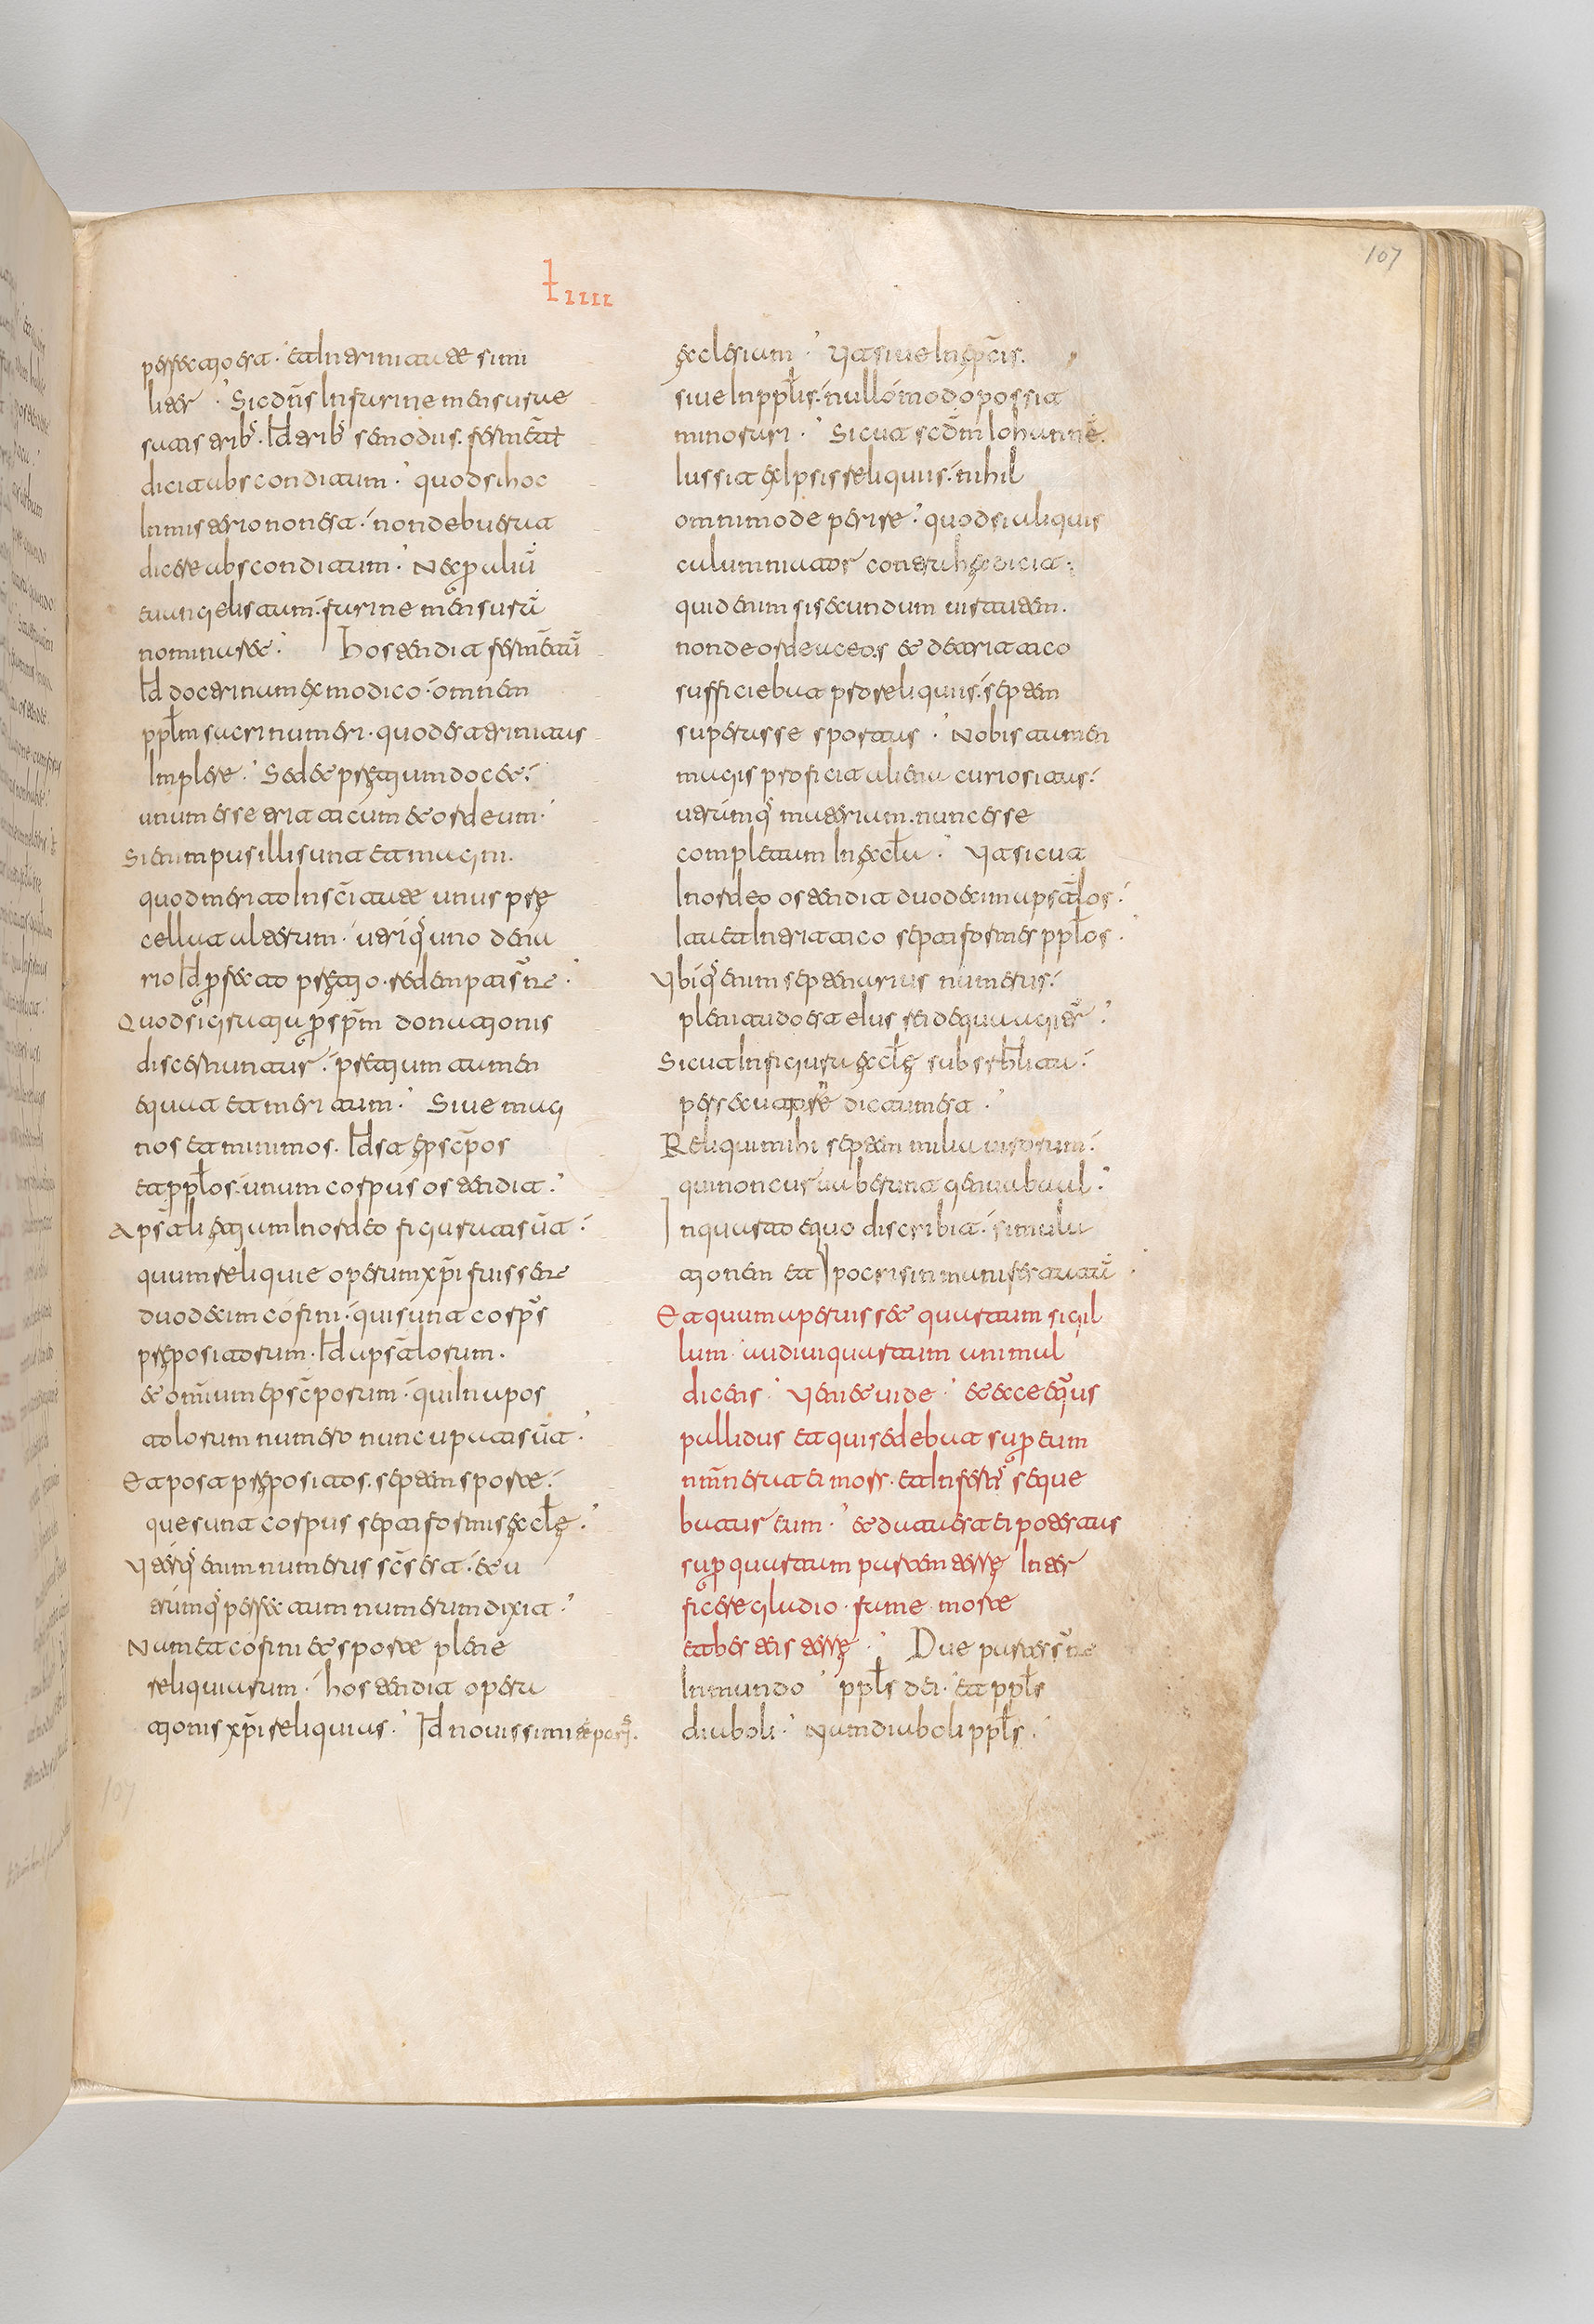 Łıııı
107
perfectjo est · et In trinitate simi
liter · Sic dn̄s In farine mensura
satis tribˢ · Id tribˢ semodiis · fermētū
dicit absconditum · quod si hoc
In misterio non est · non debuerat
dicere absconditum · Nec per aliū
euangelistam · farine mensurā
nominaret · hostendit fermētū
Id doctrinam ex modico · omnem
pplm sacri numeri · quod est trinitatis
Implere · Sed et pretjum docet ·
unum esse tritjcum et ordeum ·
Si enim pusilli sunt et magni ·
quod merito In scitate unus pre
cellat alterum · utriqˢ uno dena
rio Id perfecto pretjo · redempti sn̄t ·
Quod si gratja per spm donatjonis
discernuntur · pretjum tamen
equat et meritum · Siue mag
nos et minimos · Id st epscpos
et pplos · unum corpus ostendit ·
Apstli etjam In ordeo figurati sūt ·
quum relique operum xpi fuissent
duodecim cofini · qui sunt corps
prepositorum · Id apstlorum ·
et omium epscporum · qui In apos
tolorum numero nuncupati sūt ·
Et post prepositos · septem sporte ·
que sunt corpus septiformis eccle ·
Uterqˢ enim numerus scs est · et u
trumqˢ perfectum numerum dixit ·
Nam et cofini et sporte plene
reliquiarum · hostendit opera
tjonis xpi reliquias · Id nouissimi
ecclesiam · Ut siue In epcis ·
siue In pplis · nullomodo possit
minorari · Sicut scdm Iohannē ·
Iussit ex Ipsis reliquiis · nihil
omnimode perire · quod si aliquis
calumniator contra hec dicit ·
quidem si secundum uirtutem ·
non de ordeaceos et de tritjco
sufficiebat pro reliquiis · septem
superasse sportas · Nobis tamen
magis proficit aliena curiositas ·
utrumqˢ materiam · nunc esse
completam In eccla · Ut sicut
In ordeo ostendit duodecim apstlos ·
Ita et In tritjco septiformes pplos ·
Ubiqˢ enim septenarius numerus ·
plenitudo est eIus rei de qua agitr ·
Sicut In figura eccle sub srhl ait ·
persecutore dictum est ·
Reliqui mihi septem milia uirorum ·
qui non curuaberunt genua baal ·
In quarto equo discribit · simula
tjonem et Ipocrisin manifestatā ·
Et quum aperuisset quartum sigil
lum · audiui quartum animal
dicens · Ueni et uide · et ecce eqūs
pallidus et qui sedebat super eum
nmn erat ei mors · et Inferˢ seque
batur eum · et data est ei potestas
super quartam partem terre Inter
ficere gladio · fame · morte
et bestiis terre · Due partes sn̄t
In mundo · ppls dei · et ppls
diaboli · Nam diaboli ppls ·